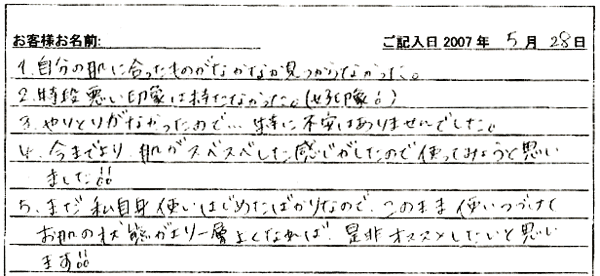 お客様お名前:　ご記入日 2007 年 5 月 28 日
1. 自分の肌に合ったものがなかなか見つからなかった。
2. 特段悪い印象は持たなかった。(好印象!!)
3. やりとりがなかったので… 特に不安はありませんでした。
4. 今までより、肌がスベスベした感じがしたので使ってみようと思い
ました!!
5. まだ私自身使いはじめたばかりなので、このまま使いつづけて
お肌の状態がより一層よくなれば、是非オススメしたいと思い
ます!!